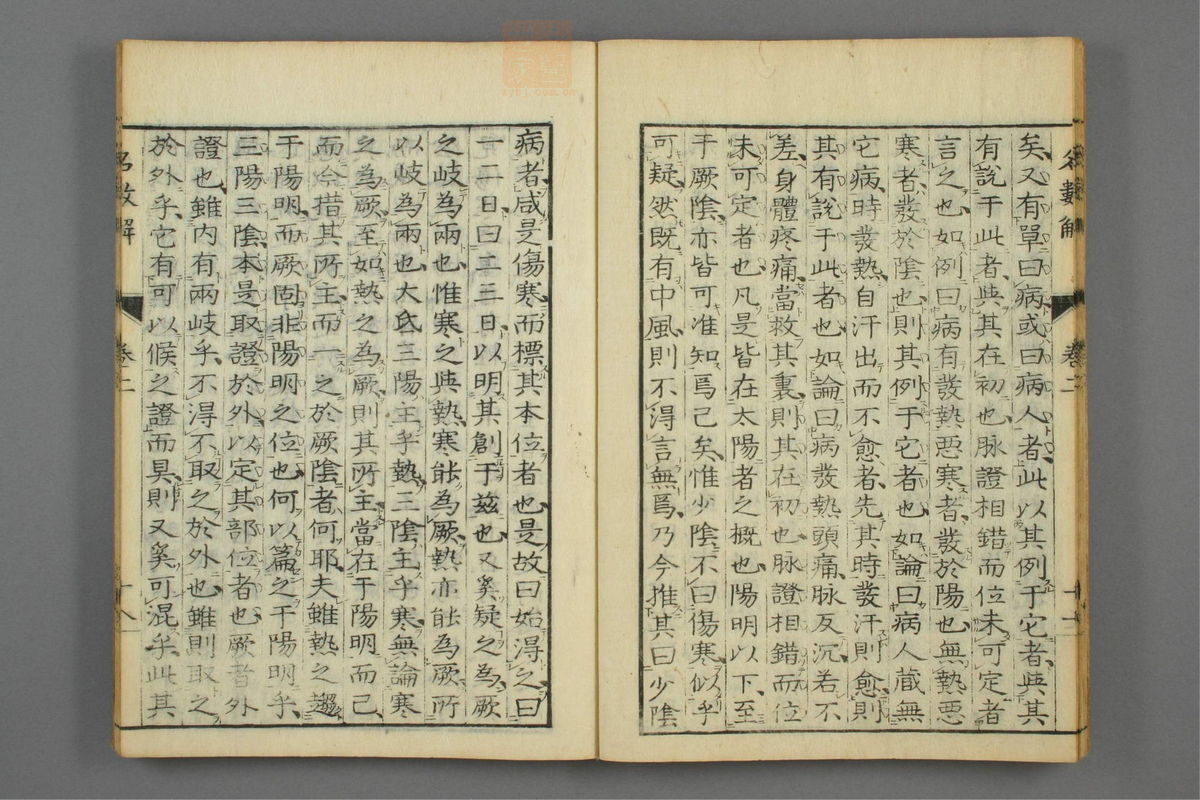 矣又有單曰病或曰病人者此以其例于它者與其
有說于此者與其在初也脉證相錯而位未可定者
言之也如例曰病有發熱惡寒者發於陽也無熱惡
寒者發於陰也則其例于它者也如論曰病人藏無
它病時發熱自汗出而不愈者先其時發汗則愈則
其有說于此者也如論曰病發熱頭痛脉反沉若不
差身體疼痛當救其裏則其在初也脉證相錯而位
未可定者也凡是皆在太陽者之概也陽明以下至
于厥陰亦皆可准知焉已矣惟少陰不曰傷寒似乎
可疑然既有中風則不得言無焉乃今推其曰少陰
病者咸是傷寒而標其本位者也是故曰始得之曰
一二日曰二三日以明其創于茲也又奚疑之為厥
之岐為兩也惟寒之與熱寒能為厥熱亦能為厥所
以岐為兩也大氐三陽主乎熱三陰主乎寒無論寒
之為厥至如熱之為厥則其所主當在于陽明而已
而今措其所主而一之於厥陰者何耶夫雖熱之邇
于陽明而厥固非陽明之位也何以篇之于陽明乎
三陽三陰本是取證於外以定其部位者也厥者外
證也雖內有兩岐乎不得不取之於外也雖則取之
於外乎它有可以候之證而具則又奚可混乎此其
名數解
卷二
十七
名數解
卷二
十八